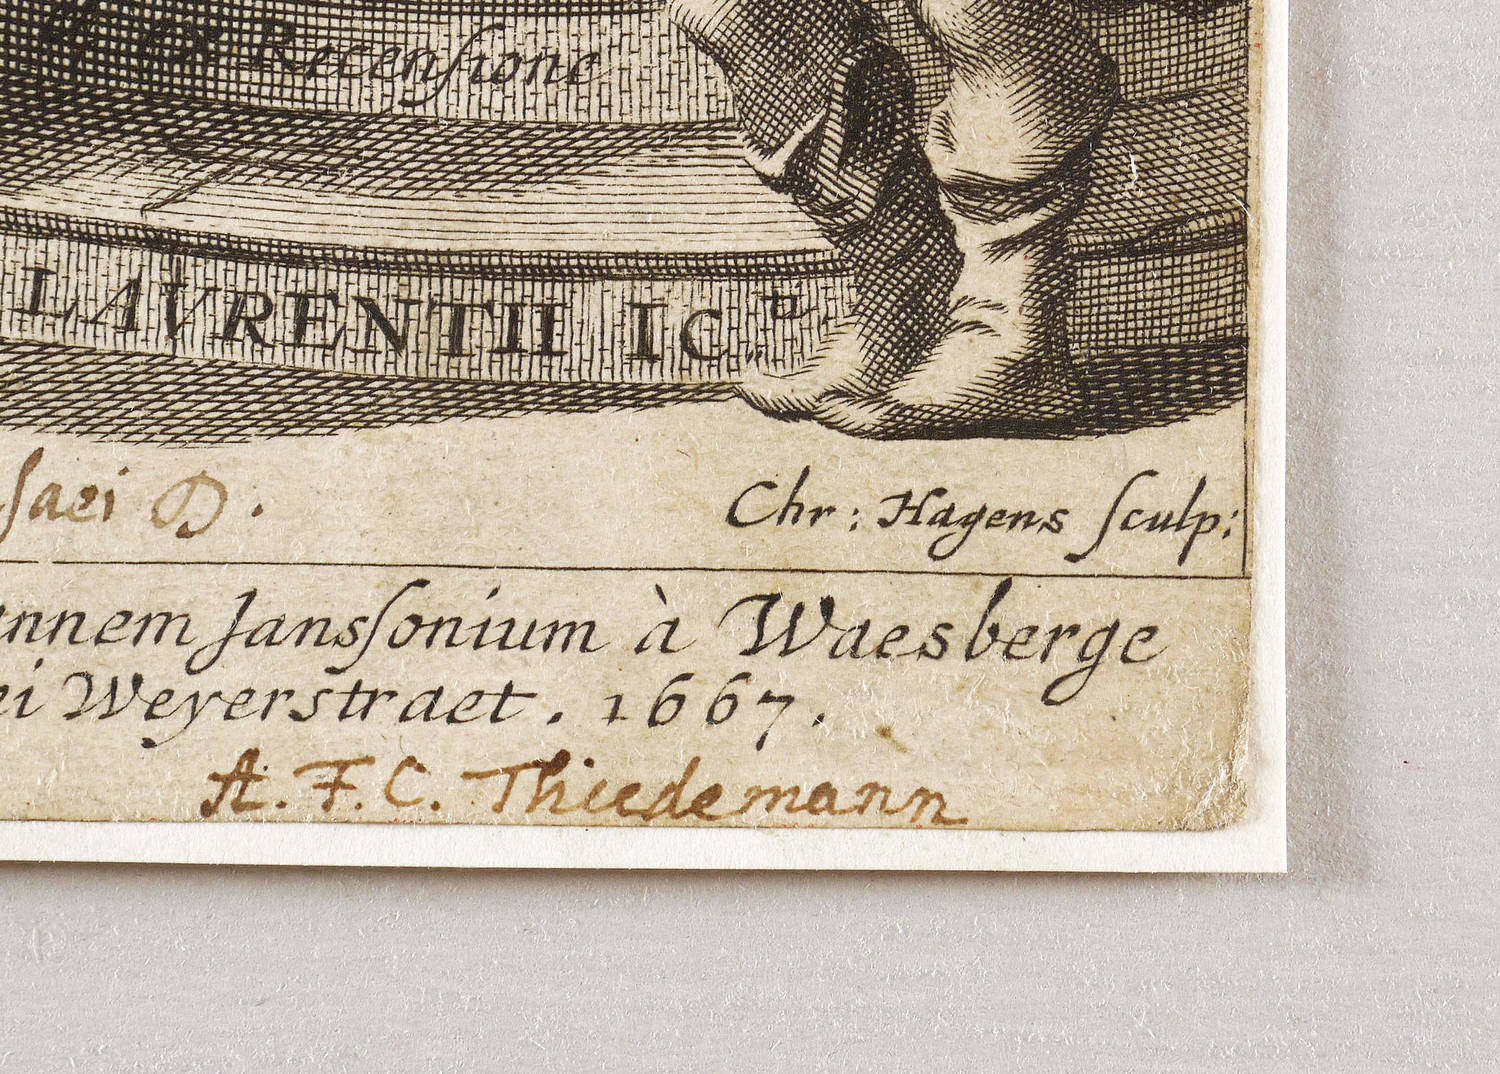 ex Recenſione
LAVRENTII IC.ti
ſaei D.
Chr: Hagens ſculp:
annem Janſſonium à Waesberge
ei Weyerstraet. 1667.
A. F. C. Thiedemann